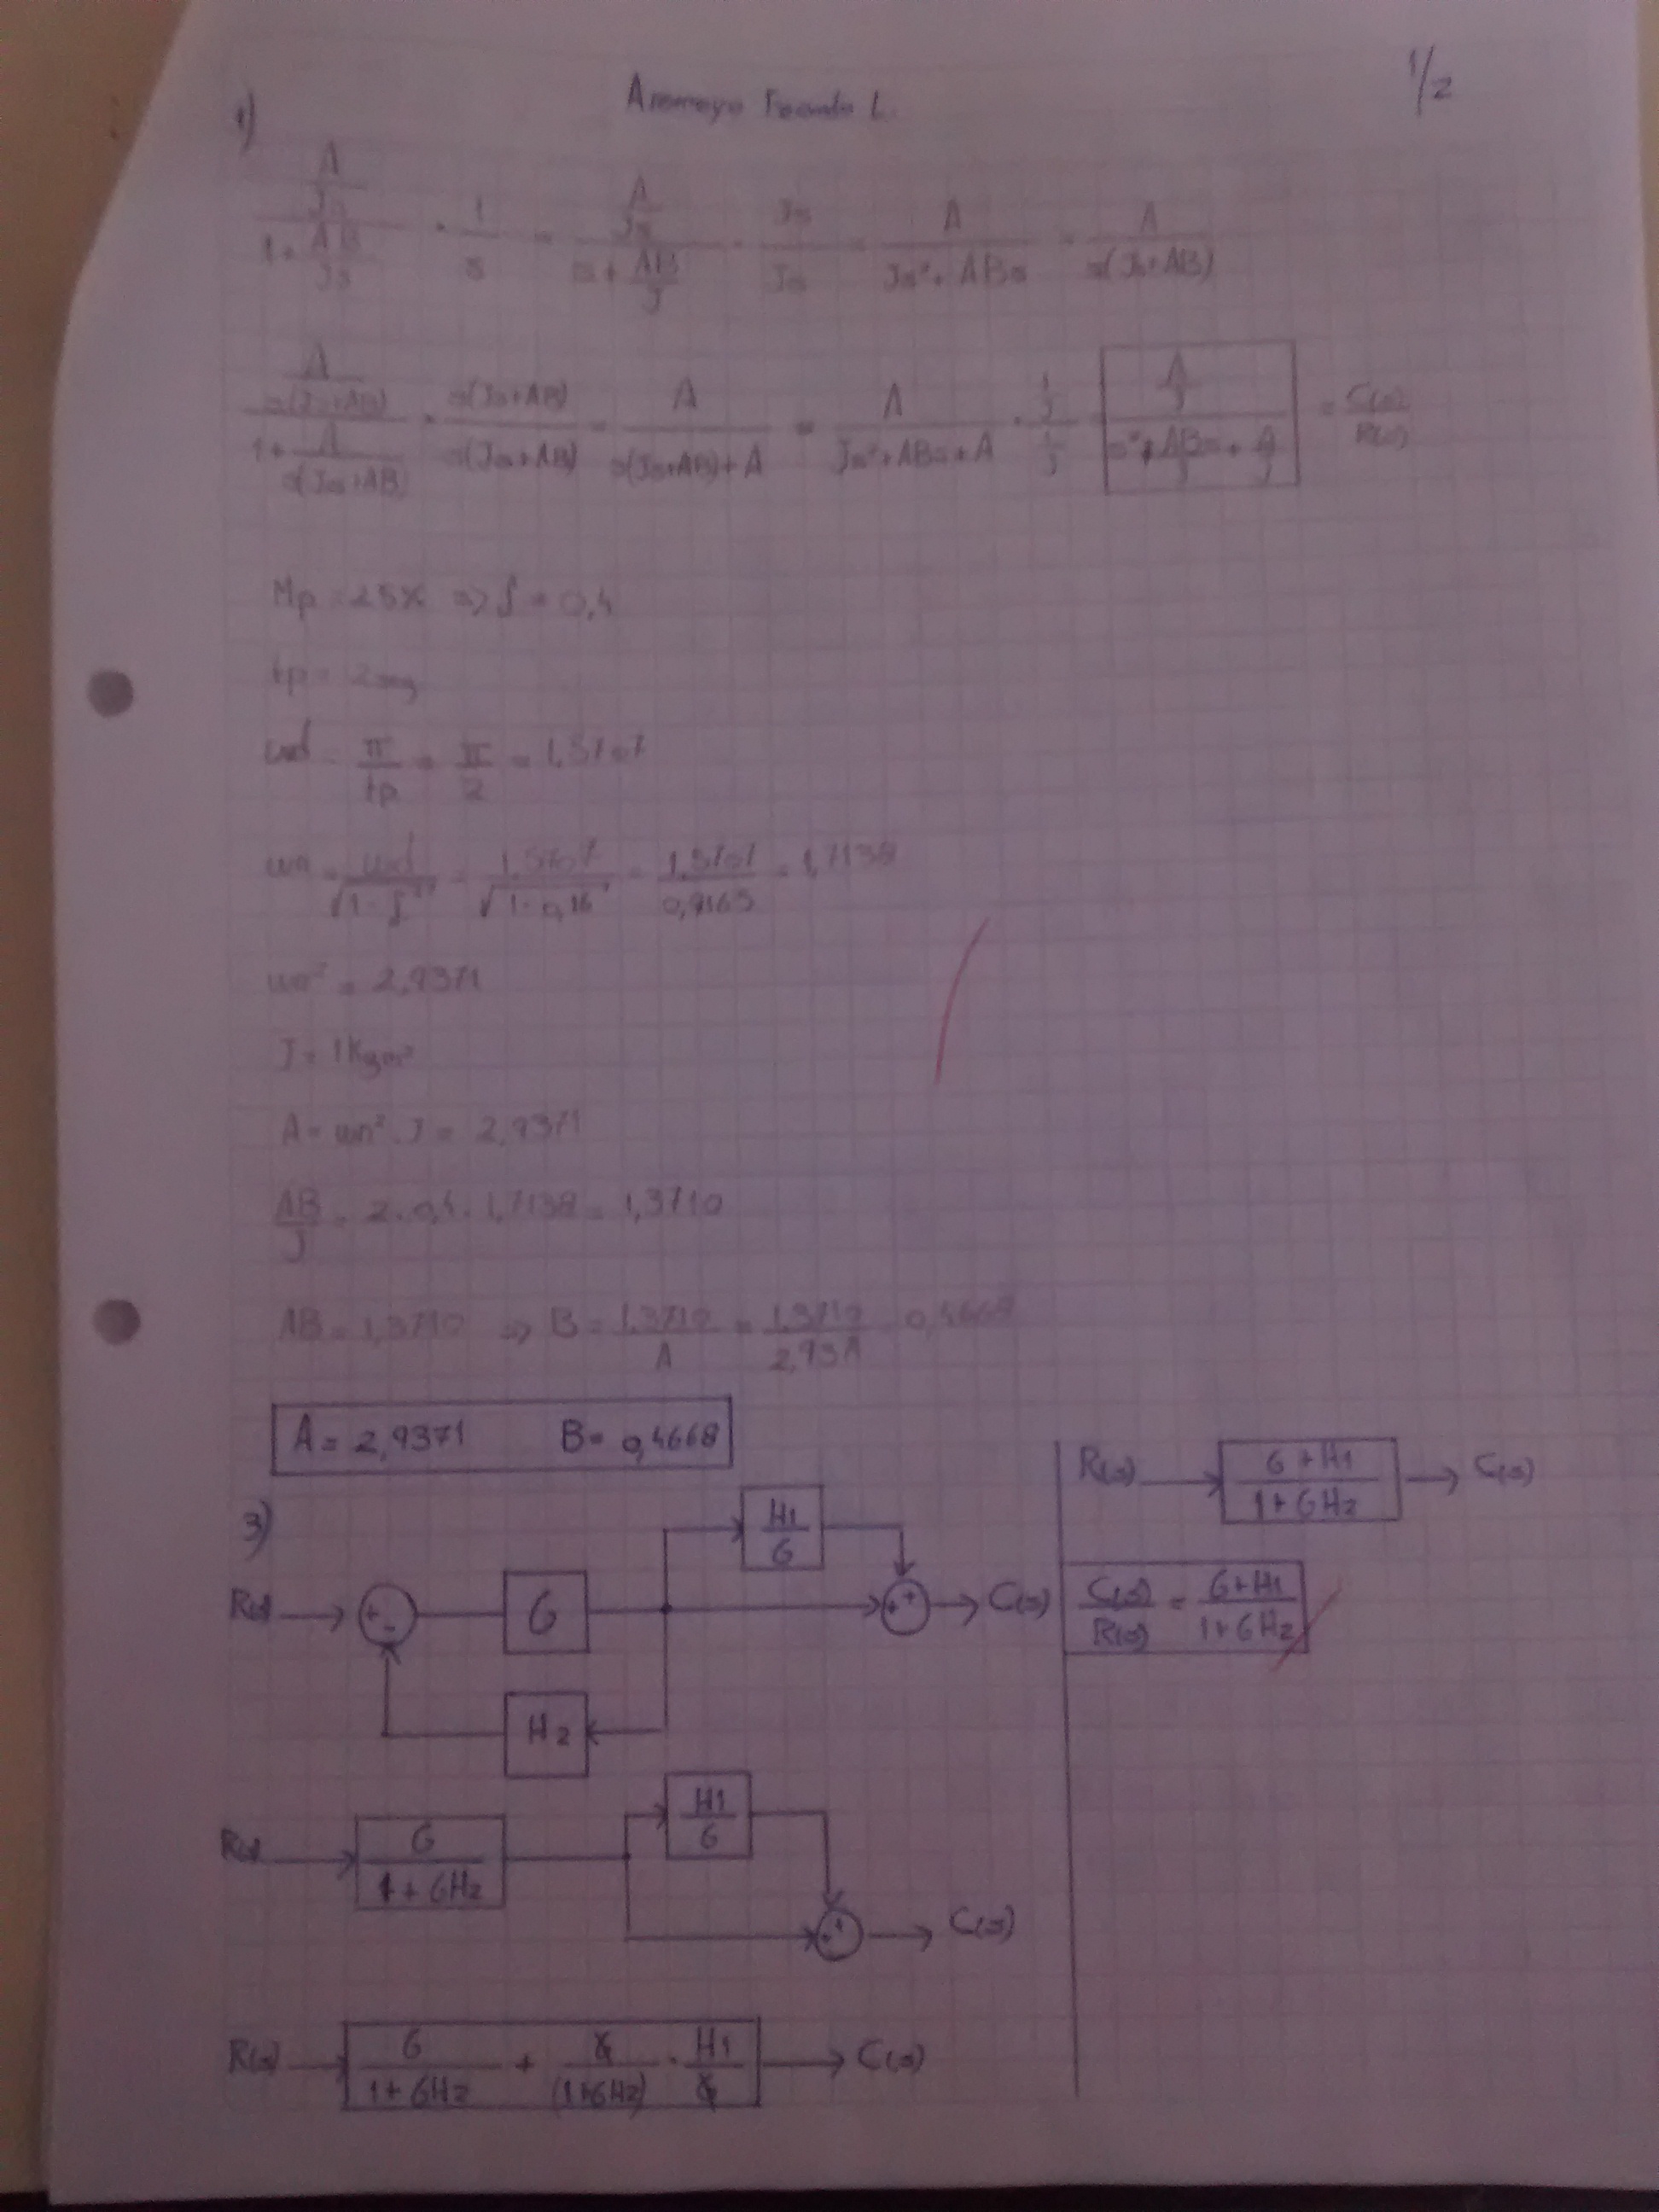 1/2
1)
A/Js / (1 + AB/Js) · 1/s = A/Js / (s + AB/J) · Js/Js = A / (Js² + ABs) = A / s(Js+AB)
A/s(Js+AB) / (1 + A/s(Js+AB)) · s(Js+AB)/s(Js+AB) = A / (s(Js+AB) + A) = A / (Js² + ABs + A) · 1/J / 1/J = A/J / (s² + AB/J s + A/J) = C(s)/R(s)
Mp = 25% => ζ = 0,4
tp = 2 seg
wd = π/tp = π/2 = 1,5707
wn = wd/√(1-ζ²) = 1,5707/√(1-0,16) = 1,5707/0,9165 = 1,7138
wn² = 2,9371
J = 1Kgm²
A = wn² . J = 2,9371
AB/J = 2 . 0,4 . 1,7138 = 1,3710
AB = 1,3710 => B = 1,3710/A = 1,3710/2,93 = 0,4668
A = 2,9371 B = 0,4668
3)
H1/G
R(s) + - G + + C(s)
H2
H1/G
R(s) G/(1+GH2)
+ + C(s)
R(s) G/(1+GH2) + G/(1+GH2) . H1/G C(s)
R(s) (G+H1)/(1+GH2) C(s)
C(s)/R(s) = (G+H1)/(1+GH2)